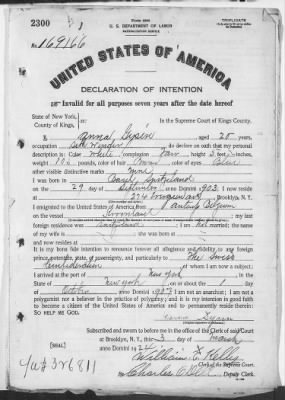 2300
Form 2203
U. S. DEPARTMENT OF LABOR
NATURALIZATION SERVICE
TRIPLICATE
No. 169166
UNITED STATES OF AMERICA
DECLARATION OF INTENTION
Invalid for all purposes seven years after the date hereof
State of New York,
County of Kings,
In the Supreme Court of Kings County.
I, Anna aged 20 years,
occupation do declare on oath that my personal
description is: Color White, complexion Fair, height 5 feet inches,
weight pounds, color of hair Brown, color of eyes Blue
other visible distinctive marks none
I was born in Basel Switzerland
on the 29 day of September, anno Domini 1903; I now reside
at 274 Brooklyn, N. Y.
I emigrated to the United States of America from
on the vessel; my last
foreign residence was; I am not married; the name
of my wife is
and now resides at
It is my bona fide intention to renounce forever all allegiance and fidelity to any foreign
prince, potentate, state, or sovereignty, and particularly to The Swiss
Confederation of whom I am now a subject;
I arrived at the port of New York
State of New York on or about the 1 day
of October, anno Domini 1923; I am not an anarchist; I am not a
polygamist nor a believer in the practice of polygamy; and it is my intention in good faith
to become a citizen of the United States of America and to permanently reside therein:
SO HELP ME GOD.
Anna
Subscribed and sworn to before me in the office of the Clerk of said Court
at Brooklyn, N. Y., this 3 day of March
anno Domini 1924
[SEAL]
William E. Kelly
Clerk of the Supreme Court.
By Charles Deputy Clerk.
326811